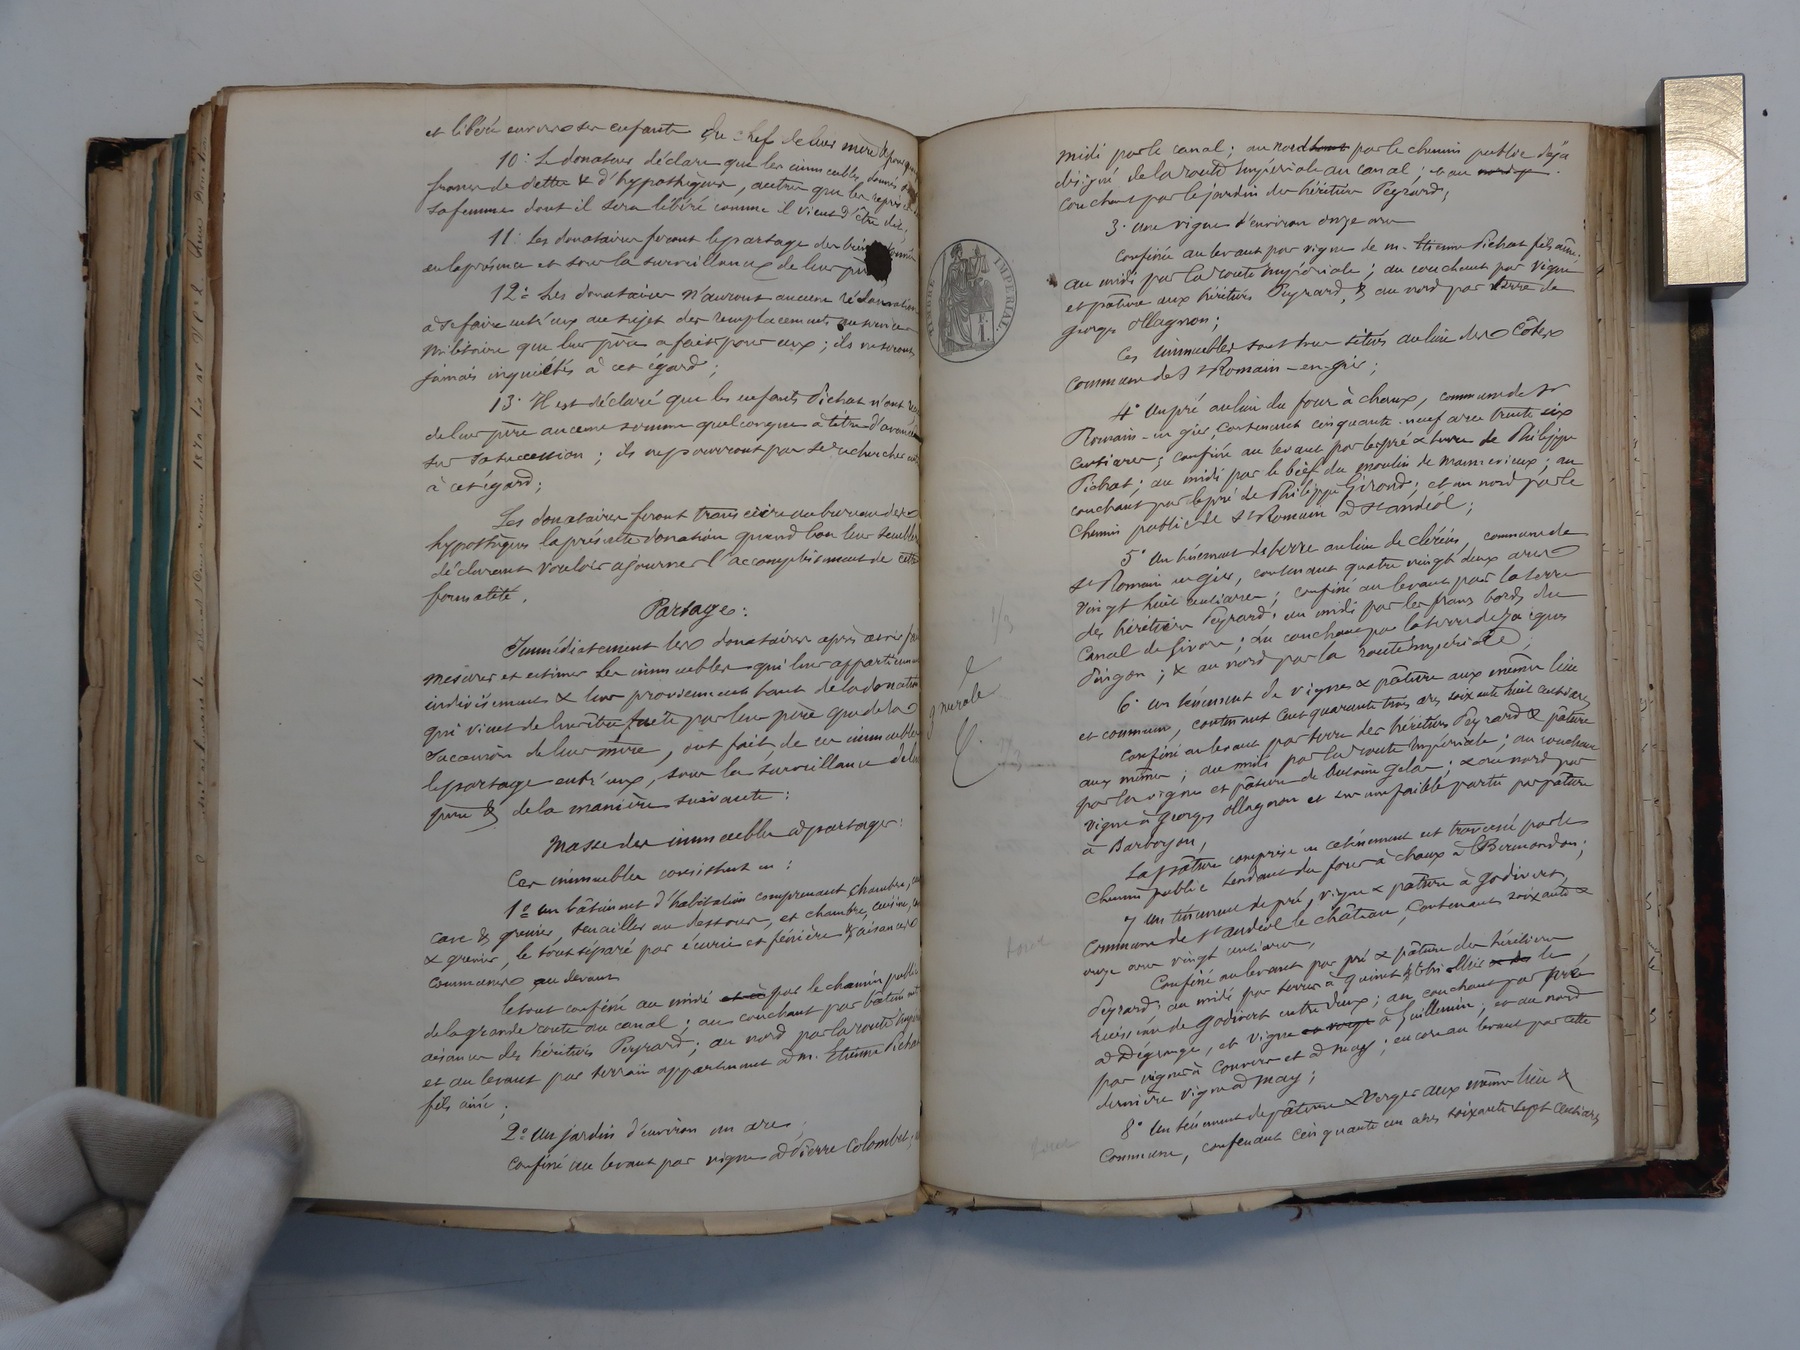 et libéré envers ses enfants du chef de leur mère
10° Le donateur déclare que les immeubles donnés sont
francs de dettes & d'hypothèques, autres que les reprises de
sa femme dont il sera libéré comme il vient d'être dit;
11° Les donataires feront le partage des biens donnés
en la présence et sous la surveillance de leur père
12° Les donataires n'auront aucune réclamation
à se faire entr'eux au sujet des remplacements au service
militaire que leur père a fait pour eux; ils ne seront
jamais inquiétés à cet égard;
13° Il est déclaré que les enfants Pichat n'ont reçu
de leur père aucune somme quelconque à titre d'avancement
sur sa succession; ils ne pourront pas se rechercher
à cet égard;
Les donataires feront transcrire au bureau des
hypothèques la présente donation quand bon leur semblera
déclarant vouloir ajourner l'accomplissement de cette
formalité.
Partage:
Immédiatement les donataires après avoir fait
mesurer et estimer les immeubles qui leur appartiennent
indivisément & leur proviennent tant de la donation
qui vient de leur être faite par leur père que de la
succession de leur mère, ont fait de ces immeubles
le partage entr'eux, sous la surveillance de leur
père & de la manière suivante:
Masse des immeubles à partager:
Ces immeubles consistent en:
1° un bâtiment d'habitation comprenant chambre,
cave & grenier, tenailler au dessous, et chambre, cuisine,
& grenier, le tout séparé par écurie et fénière & aisances
communes au devant
le tout confiné au midi par le chemin public
de la grande route au canal; au couchant par bâtiment
aisances des héritiers Peyrard; au nord par la route Impériale
et au levant par terrain appartenant à M. Etienne Pichat
fils ainé;
2° Un jardin d'environ un are;
confiné au levant par vigne à Pierre Colombet,
TIMBRE IMPERIAL
1 F.
1/3
générale
midi par le canal; au nord par le chemin public déjà
désigné de la route Impériale au canal; & au
couchant par le jardin des héritiers Peyrard;
3° une vigne d'environ onze ares
Confinée au levant par vigne de M. Etienne Pichat fils aîné;
au midi par la route Impériale; au couchant par vigne
et pâture aux héritiers Peyrard, & au nord par terre de
Georges Ollagnon;
Ces immeubles sont tous situés au lieu des Côtes
Commune de St Romain-en-gier;
4° Un pré au lieu du four à chaux, commune de St
Romain-en gier, contenant cinquante-neuf ares trente six
centiares; confiné au levant par le pré & terre de Philippe
Pichat; au midi par le bief du moulin de Manevieux; au
couchant par le pré de Philippe Girond; et au nord par le
Chemin public de St Romain à St andéol;
5° Un ténement de terre au lieu de cléris, commune de
St Romain en gier, contenant quatre vingt deux ares
vingt huit centiares; confiné au levant par la terre
des héritiers Peyrard; au midi par les francs bords du
Canal de Givors; au couchant par la terre de Jacques
Pingon; & au nord par la route Impériale;
6° un ténement de vignes & pâture aux même lieu
et commune, contenant cent quarante trois ares soixante huit centiares
Confiné au levant par terre des héritiers Peyrard & pâture
aux mêmes; au midi par la route Impériale; au couchant
par la vigne et pâture de Antoine Gelas; & au nord par
vigne à Georges Ollagnon et sur une faible partie par pâture
à Barboyon,
La pâture comprise en ce ténement est traversée par le
Chemin public tendant du four à chaux à Bermondon;
7° un ténement de pré, vigne & pâture à Godivert,
Commune de St andéol le château, contenant soixante &
onze ares vingt centiares,
Confiné au levant par pré & pâture des héritiers
Peyrard; au midi par terres à Guinet & le
ruisseau de Godivert entre deux; au couchant par pré
à Dégrange, et vigne à Guillermin; et au nord
par vignes à Couvers et à May; encore au levant par cette
dernière vigne à May;
8° Un ténement de pâture & verger aux même lieu &
Commune, contenant cinquante un ares soixante sept centiares